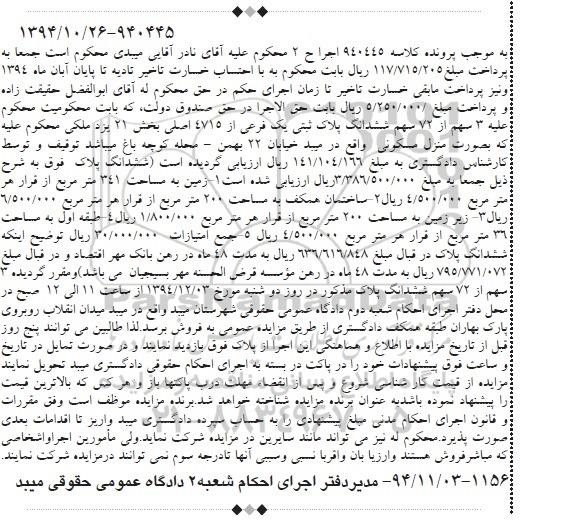 ۱۳۹۴/۱۰/۲۶-۹۴۰۴۴۵
به موجب پرونده کلاسه ۹۴۰۴۴۵ اجرا ح ۲ محکوم علیه آقای نادر آقایی میبدی محکوم است جمعا به
پرداخت مبلغ۱۱۷/۷۱۵/۲۰۵ ریال بابت محکوم به با احتساب خسارت تاخیر تادیه تا پایان آبان ماه ۱۳۹۴
ونیز پرداخت مابقی خسارت تاخیر تا زمان اجرای حکم در حق محکوم له آقای ابوالفضل حقیقت زاده
و پرداخت مبلغ ۵/۲۵۰/۰۰۰ ریال بابت حق الاجرا در حق صندوق دولت، که بابت محکومیت محکوم
علیه ۳ سهم از ۷۲ سهم ششدانگ پلاک ثبتی یک فرعی از ۴۷۱۵ اصلی بخش ۲۱ یزد ملکی محکوم علیه
که بصورت منزل مسکونی واقع در میبد خیابان ۲۲ بهمن - محله کوچه باغ میباشد توقیف و توسط
کارشناس دادگستری به مبلغ ۱۴۱/۱۰۴/۱۶۶ ریال ارزیابی گردیده است (ششدانگ پلاک فوق به شرح
ذیل جمعا به مبلغ ۳/۳۸۶/۵۰۰/۰۰۰ریال ارزیابی شده است۱-زمین به مساحت ۳۴۱ متر مربع از قرار هر
متر مربع ۴/۵۰۰/۰۰۰ ریال۲-ساختمان همکف به مساحت ۲۰۰ متر مربع از قرار هر متر مربع ۶/۵۰۰/۰۰۰
ریال۳- زیر زمین به مساحت ۲۰۰ متر مربع از قرار هر متر مربع ۱/۸۰۰/۰۰۰ ریال۴-طبقه اول به مساحت
۳۶ متر مربع از قرار هر متر مربع ۴/۵۰۰/۰۰۰ ریال ۵-جمع امتیازات ۳۰/۰۰۰/۰۰۰ ریال توضیح اینکه
ششدانگ پلاک در قبال مبلغ ۶۳۶/۶۱۶/۸۴۸ ریال به مدت ۴۸ ماه در رهن بانک مهر اقتصاد و در قبال مبلغ
۷۹۵/۷۷۱/۰۷۲ ریال به مدت ۴۸ ماه در رهن مؤسسه قرض الحسنه مهر بسیجیان می باشد)ومقرر گردیده ۳
سهم از ۷۲ سهم ششدانگ پلاک مذکور در روز دو شنبه مورخ ۱۳۹۴/۱۲/۰۳ از ساعت ۱۱ الی ۱۲ صبح در
محل دفتر اجرای احکام شعبه دوم دادگاه عمومی حقوقی شهرستان میبد واقع در میبد میدان انقلاب روبروی
پارک بهاران طبقه همکف دادگستری از طریق مزایده عمومی به فروش برسد.لذا طالبین می توانند پنج روز
قبل از تاریخ مزایده با اطلاع و هماهنگی این اجرا از پلاک فوق بازدید نمایند و در صورت تمایل در تاریخ
و ساعت فوق پیشنهادات خود را در پاکت در بسته به اجرای احکام حقوقی دادگستری میبد تحویل نمایند
مزایده از قیمت کارشناسی شروع و پس از انقضاء مهلت درب پاکتها باز و هر کس که بالاترین قیمت
را پیشنهاد نموده باشدبه عنوان برنده مزایده شناخته خواهد شد.برنده مزایده موظف است وفق مقررات
و قانون اجرای احکام مدنی مبلغ پیشنهادی را به حساب سپرده دادگستری میبد واریز تا اقدامات بعدی
صورت پذیرد.محکوم له نیز می تواند مانند سایرین در مزایده شرکت نماید.ولی مأمورین اجراواشخاصی
که مباشرفروش هستند وارزیا بان واقربا نسبی وسببی آنها تادرجه سوم نمی توانند درمزایده شرکت نمایند.
۹۴/۱۱/۰۳-۱۱۵۶- مدیردفتر اجرای احکام شعبه۲ دادگاه عمومی حقوقی میبد